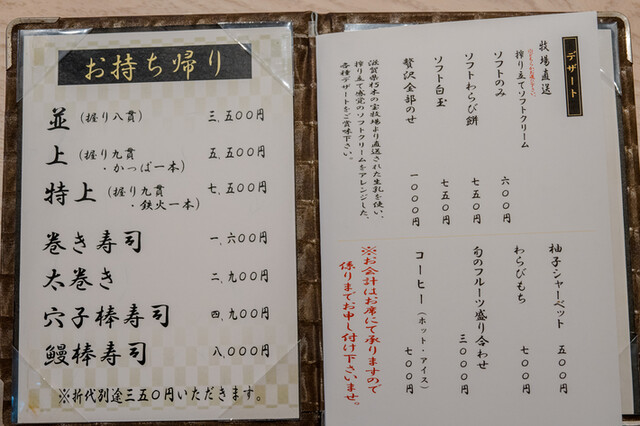 お持ち帰り
並（握り八貫） 三,五〇〇円
上（握り九貫・かっぱ一本） 五,五〇〇円
特上（握り九貫・鉄火一本） 七,五〇〇円
巻き寿司 一,六〇〇円
太巻き 二,九〇〇円
穴子棒寿司 四,九〇〇円
鰻棒寿司 八,〇〇〇円
※折代別途三五〇円いただきます。
デザート
牧場直送
搾り立てソフトクリーム
ソフトのみ 六〇〇円
ソフトわらび餅 七五〇円
ソフト白玉 七五〇円
贅沢全部のせ 一〇〇〇円
滋賀県朽木の宝牧場より直送された生乳を使い、
搾り立て感覚のソフトクリームをアレンジした、
各種デザートをご賞味下さい。
柚子シャーベット 五〇〇円
わらびもち 七〇〇円
旬のフルーツ盛り合わせ 三〇〇〇円
コーヒー（ホット・アイス） 七〇〇円
※お会計はお席にて承りますので
係りまでお申し付け下さいませ。